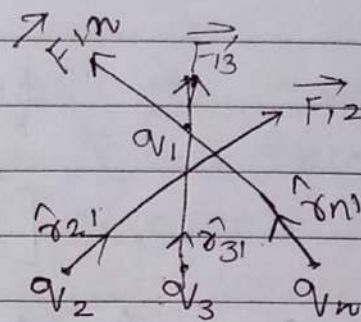 F₁n F₁₃
F₁₂
q₁
r̂₂₁ r̂₃₁ r̂n₁
q₂ q₃ qn